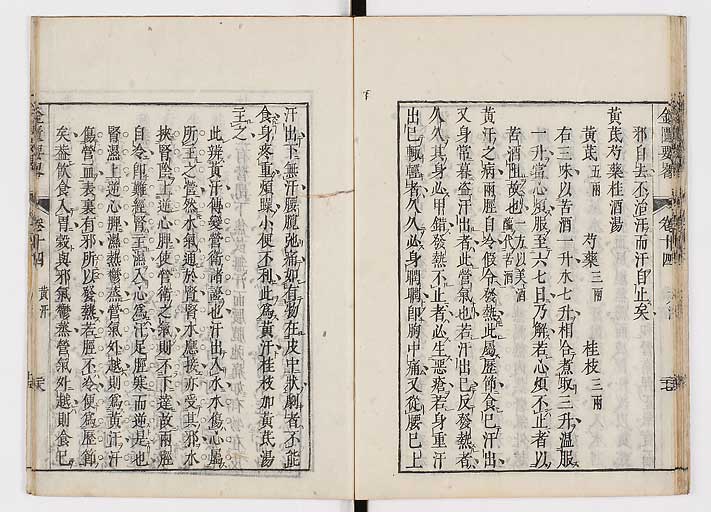 邪自去不治汗而汗自止矣
黃芪芍藥桂酒湯
黃芪五兩 芍藥三兩 桂枝三兩
右三味以苦酒一升水七升相合煮取三升溫服
一升當心煩服至六七日乃解若心煩不止者以
苦酒阻故也一方以美酒醯代苦酒
黃汗之病兩脛自冷假令發熱此屬歷節食已汗出
又身常暮盜汗出者此營氣也若汗出已反發熱者
久久其身必甲錯發熱不止者必生惡瘡若身重汗
出已輒輕者久久必身瞤瞤即胸中痛又從腰已上
汗出下無汗腰髖弛痛如有物在皮中狀劇者不能
食身疼重煩躁小便不利此為黃汗桂枝加黃芪湯
主之
此辨黃汗傳變營衛諸證也汗出入水水傷心屬
所主之營然水氣通於腎腎水應接亦受其邪水
挾腎陰上逆心脾使營衛之氣則不下達故兩脛
自冷即難經腎主濕入心為汗足脛寒而逆是也
腎濕上逆心脾濕熱鬱蒸營氣外越則為黃汗汗
傷營血表裏有邪所以發熱若脛不冷便為歷節
矣葢飲食入胃穀與邪氣鬱蒸營氣外越則食已
金匱要略
卷十四
黃汗
金匱要略
卷十四